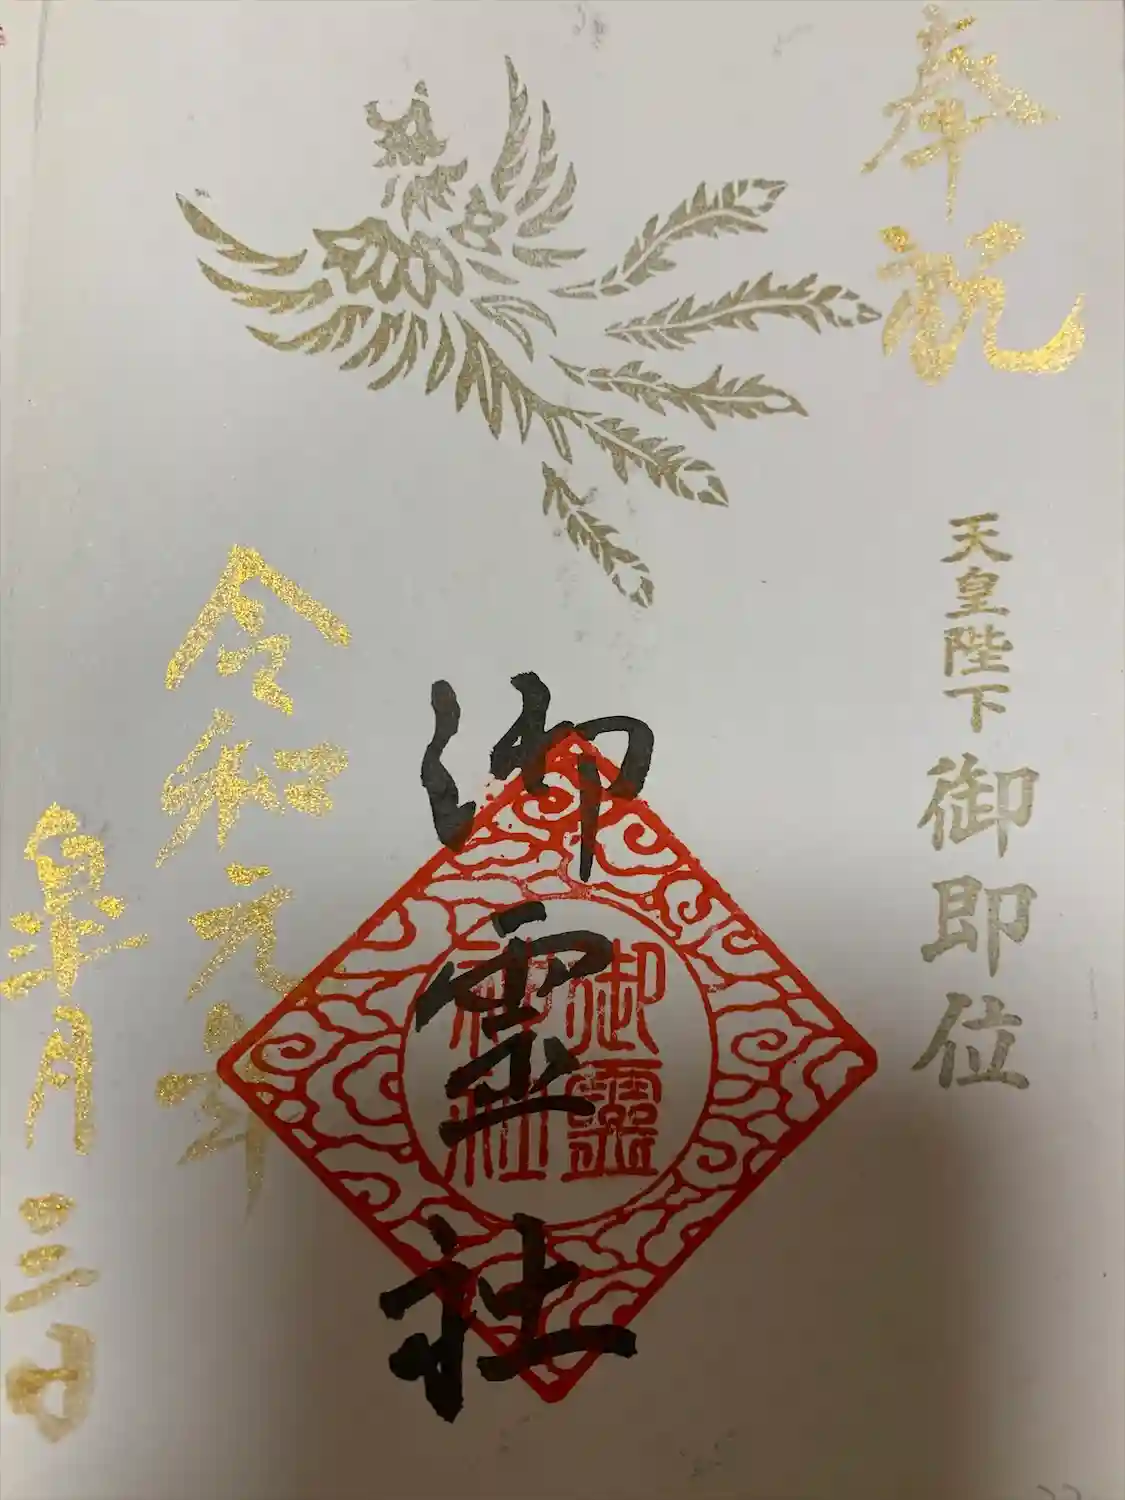 奉祝
天皇陛下御即位
御霊社
御霊
神社
令和元年
皐月三日